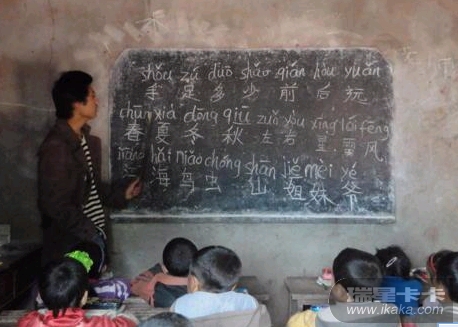 shǒu zú duō shǎo qián hòu yuǎn
手 足 多 少 前 后 远
chūn xià dōng qiū zuǒ yòu xīng léi fēng
春 夏 冬 秋 左 右 星 雷 风
jiāng hǎi niǎo chóng shān jiě mèi yé
江 海 鸟 虫 山 姐 妹 爷
瑞星卡卡
www.ikaka.com